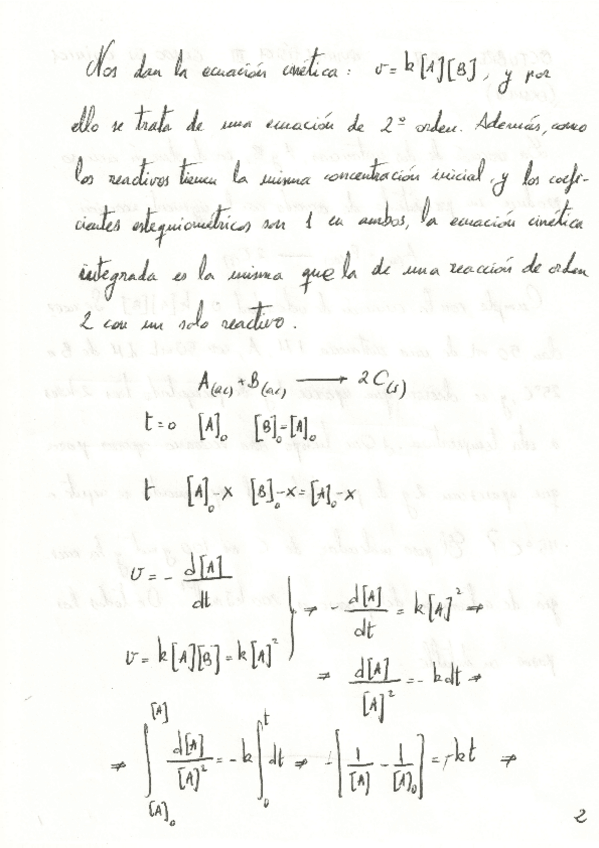 Nos dan la ecuación cinética: v=k[A][B], y por
ello se trata de una ecuación de 2º orden. Además, como
los reactivos tienen la misma concentración inicial, y los coefi-
cientes estequiométricos son 1 en ambos, la ecuación cinética
integrada es la misma que la de una reacción de orden
2 con un solo reactivo.
A(ac)+B(ac) ⟶ 2C(s)
t=0 [A]₀ [B]₀=[A]₀
t [A]₀-x [B]₀-x=[A]₀-x
v=- d[A]/dt
v=k[A][B]=k[A]² } ⇒ - d[A]/dt = k[A]² ⇒
⇒ d[A]/[A]² = -kdt ⇒
⇒ ∫_{[A]₀}^{[A]} d[A]/[A]² = -k ∫₀ᵗ dt ⇒ -[1/[A] - 1/[A]₀] = -kt ⇒
2